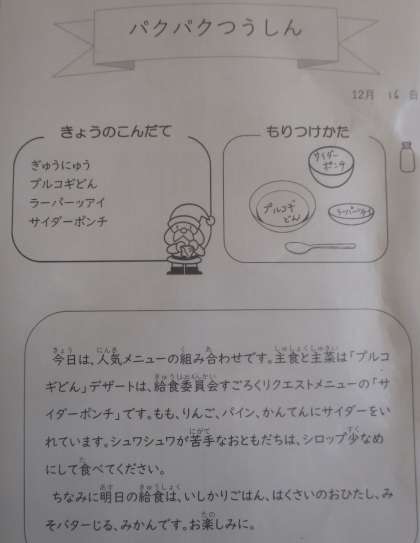 パクパクつうしん
12月 16日
きょうのこんだて
ぎゅうにゅう
プルコギどん
ラーパーツァイ
サイダーポンチ
もりつけかた
サイダー
ポンチ
プルコギ
どん
ラーパーツァイ
今日は、人気メニューの組み合わせです。主食と主菜は「プルコ
ギどん」デザートは、給食委員会すごろくリクエストメニューの「サ
イダーポンチ」です。もも、りんご、パイン、かんてんにサイダーをい
れています。シュワシュワが苦手なおともだちは、シロップ少なめ
にして食べてください。
ちなみに明日の給食は、いしかりごはん、はくさいのおひたし、み
そバターじる、みかんです。お楽しみに。